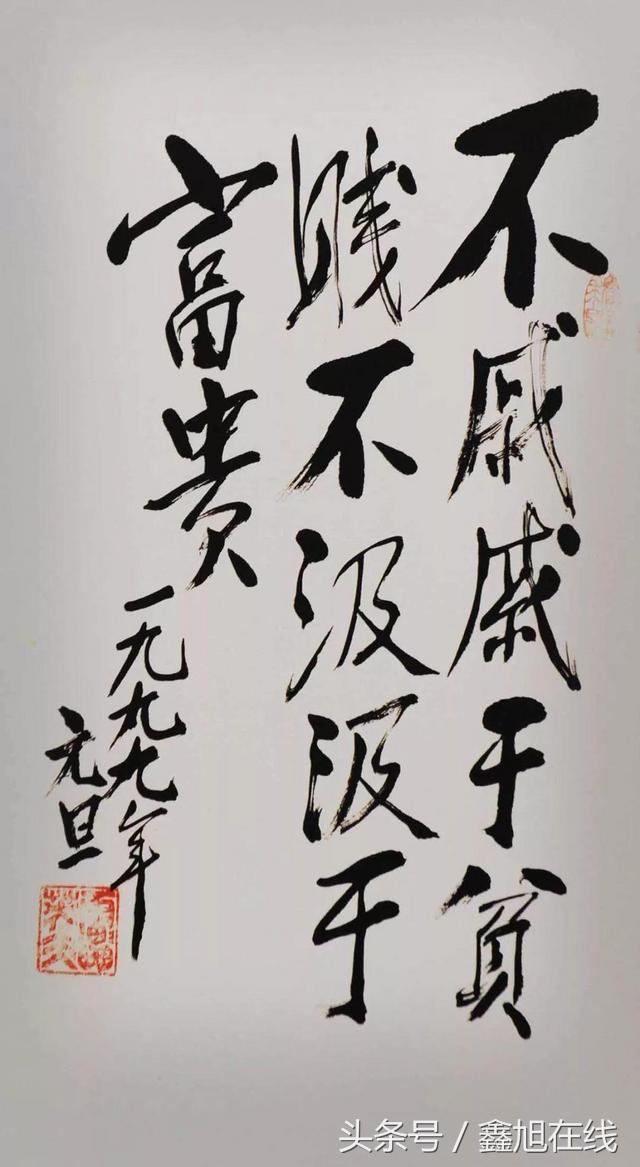 不戚戚于贫
贱不汲汲于
富贵
一九九九年
元旦
头条号／鑫旭在线